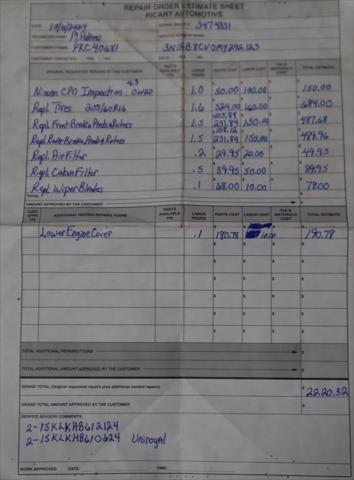 REPAIR ORDER ESTIMATE SHEET
RICART AUTOMOTIVE
DATE: 10/11/2024 REPAIR ORDER #: 3474331
TECHNICIAN NAME: PJ Adams SERVICE ADVISOR NAME:
CUSTOMER'S NAME: PRC40681 3N1AB8CV0MY292123
CUSTOMER CONTACTED YES NO
ORIGINAL REQUESTED REPAIRS BY THE CUSTOMER PARTS AVAILABLE Y/N LABOR HOURS PARTS COST LABOR COST TAX & MATERIALS COST TOTAL ESTIMATE
Nissan CPO Inspection 0W20 1.0 50.00 100.00 150.00
Repl Tires 205/60R16 1.6 524.00 160.00 684.00
Repl Front Brake Pads & Rotors 1.5 231.84 150.00 487.68
Repl Rear Brake Pads & Rotors 1.5 231.84 150.00 489.96
Repl Air Filter .2 29.95 20.00 49.95
Repl Cabin Filter .5 39.95 50.00 89.95
Repl Wiper Blades .1 68.00 10.00 78.00
TOTAL
AMOUNT APPROVED BY THE CUSTOMER
ADDITIONAL NEEDED REPAIRS FOUND PARTS AVAILABLE Y/N LABOR HOURS PARTS COST LABOR COST TAX & MATERIALS COST TOTAL ESTIMATE
Lower Engine Cover .1 180.78 10.00 190.78
TOTAL ADDITIONAL REPAIRS FOUND
TOTAL ADDITIONAL AMOUNT APPROVED BY THE CUSTOMER
GRAND TOTAL (Original requested repairs plus additional needed repairs) 2220.32
GRAND TOTAL AMOUNT APPROVED BY THE CUSTOMER
SERVICE ADVISOR COMMENTS:
2-15KLKHB612124
2-15KLKHB610624 Uniroyal
WORK APPROVED DATE: TIME: